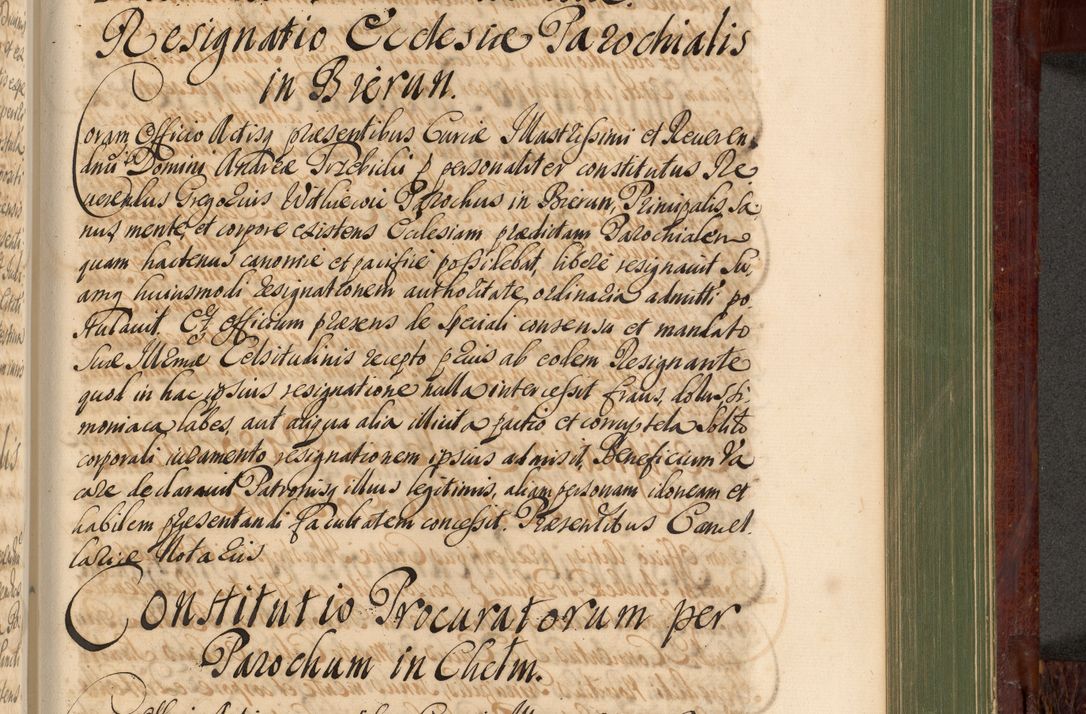 Resignatio Ecclesiæ Parochialis
in Bierun.
Coram Officio Actisq præsentibus Curiæ Illustrissimi et Reueren
dnũ Domini Andreæ Trzebicki p personaliter constitutus Re
uerendus Gregorius Parochus in Bierun, Principalis, Sa
nus mente, et corpore existens Ecclesiam prædictam Parochialem
quam hactenus canonice et pacifice possidebat, liberè resignauit Su,
amq huiusmodi resignationem authoritate ordinaria admitti po
stulauit. Et officium præsens de speciali consensu et mandato
suæ Illũmæ Celsitudinis recepto prius ab eodem Resignante
quod in hac ipsius resignatione nulla intercessit fraus, dolus, si,
moniaca labes, aut aliqua alia illicita pactio et corruptela, ablito
corporali iuramento resignationem ipsius admisit, Beneficium Va
care declarauit Patronisq illius legitimis, aliam personam idoneam et
habilem præsentandi facultatem concessit. Præsentibus Cancel
lariæ Notariis
Constitutio Procuratorum per
Parochum in Chełm.